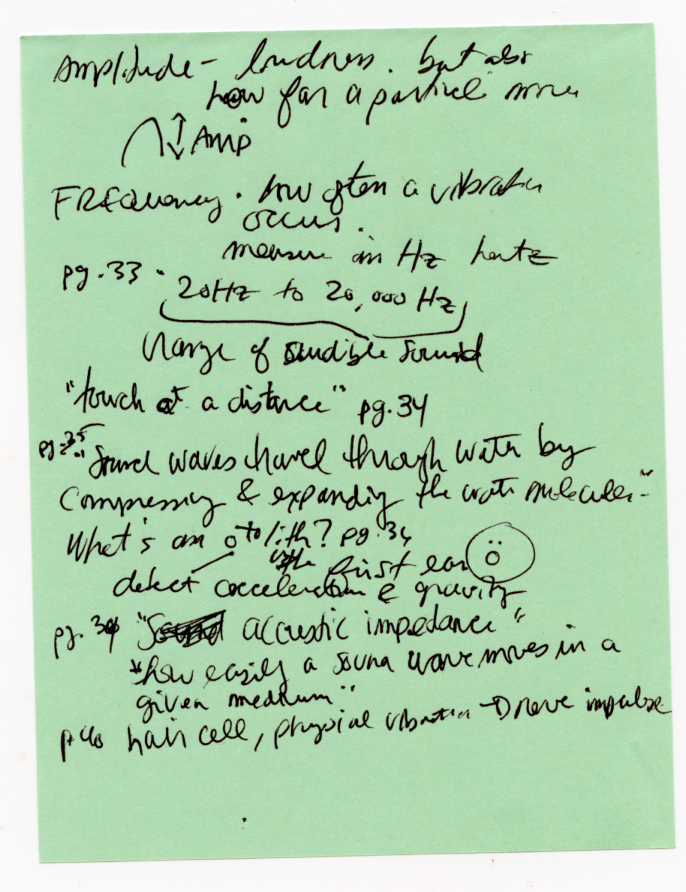 Amplitude - loudness. but also
how far a particle moves
Amp
FREquency. how often a vibration
occurs.
measure in Hz hertz
pg. 33.
20Hz to 20,000 Hz
range of audible sound
"touch at a distance" pg. 34
pg 35 "Sound waves travel through water by
compressing & expanding the water molecules"
What's an otolith? pg. 34
is the first ear
detect acceleration & gravity
pg. "acoustic impedance"
"how easily a sound wave moves in a
given medium"
hair cell, physical vibration → nerve impulse